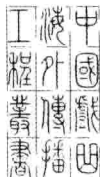 中國戲曲
海外傳播
工程叢書